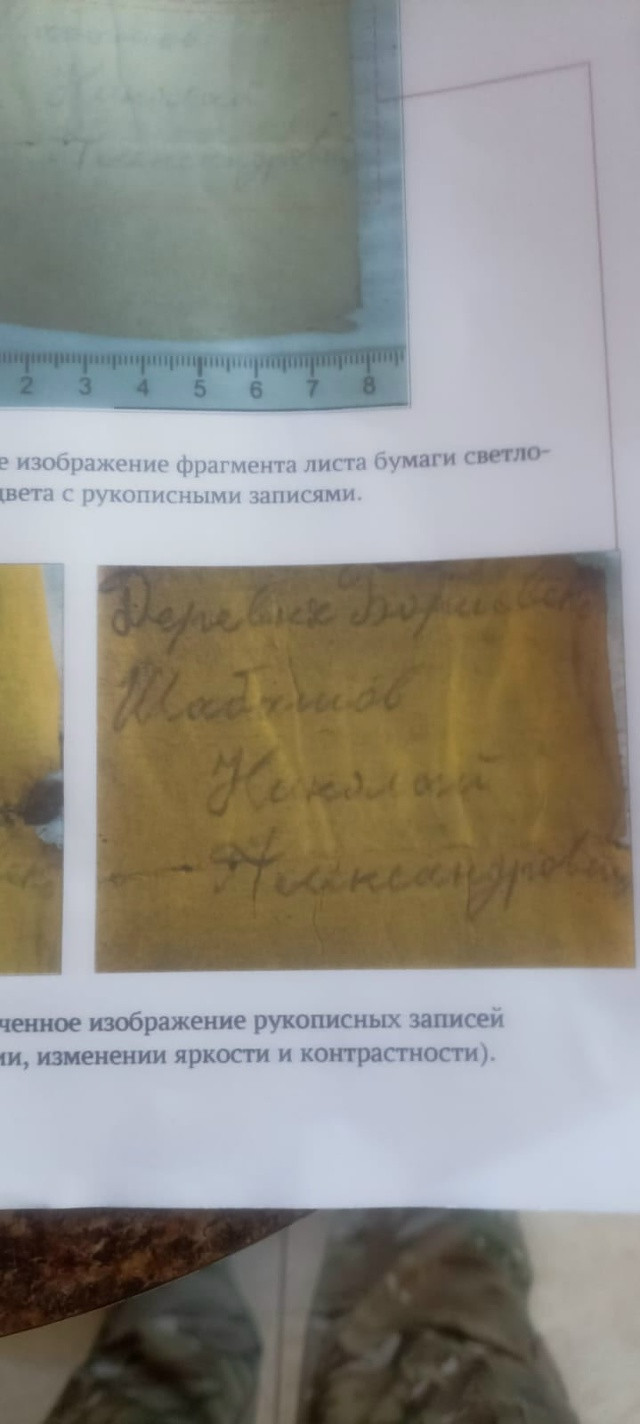 Николай
Александрович
2 3 4 5 6 7 8
е изображение фрагмента листа бумаги светло-
цвета с рукописными записями.
Деревня
Николай
Александрович
ченное изображение рукописных записей
ии, изменении яркости и контрастности).